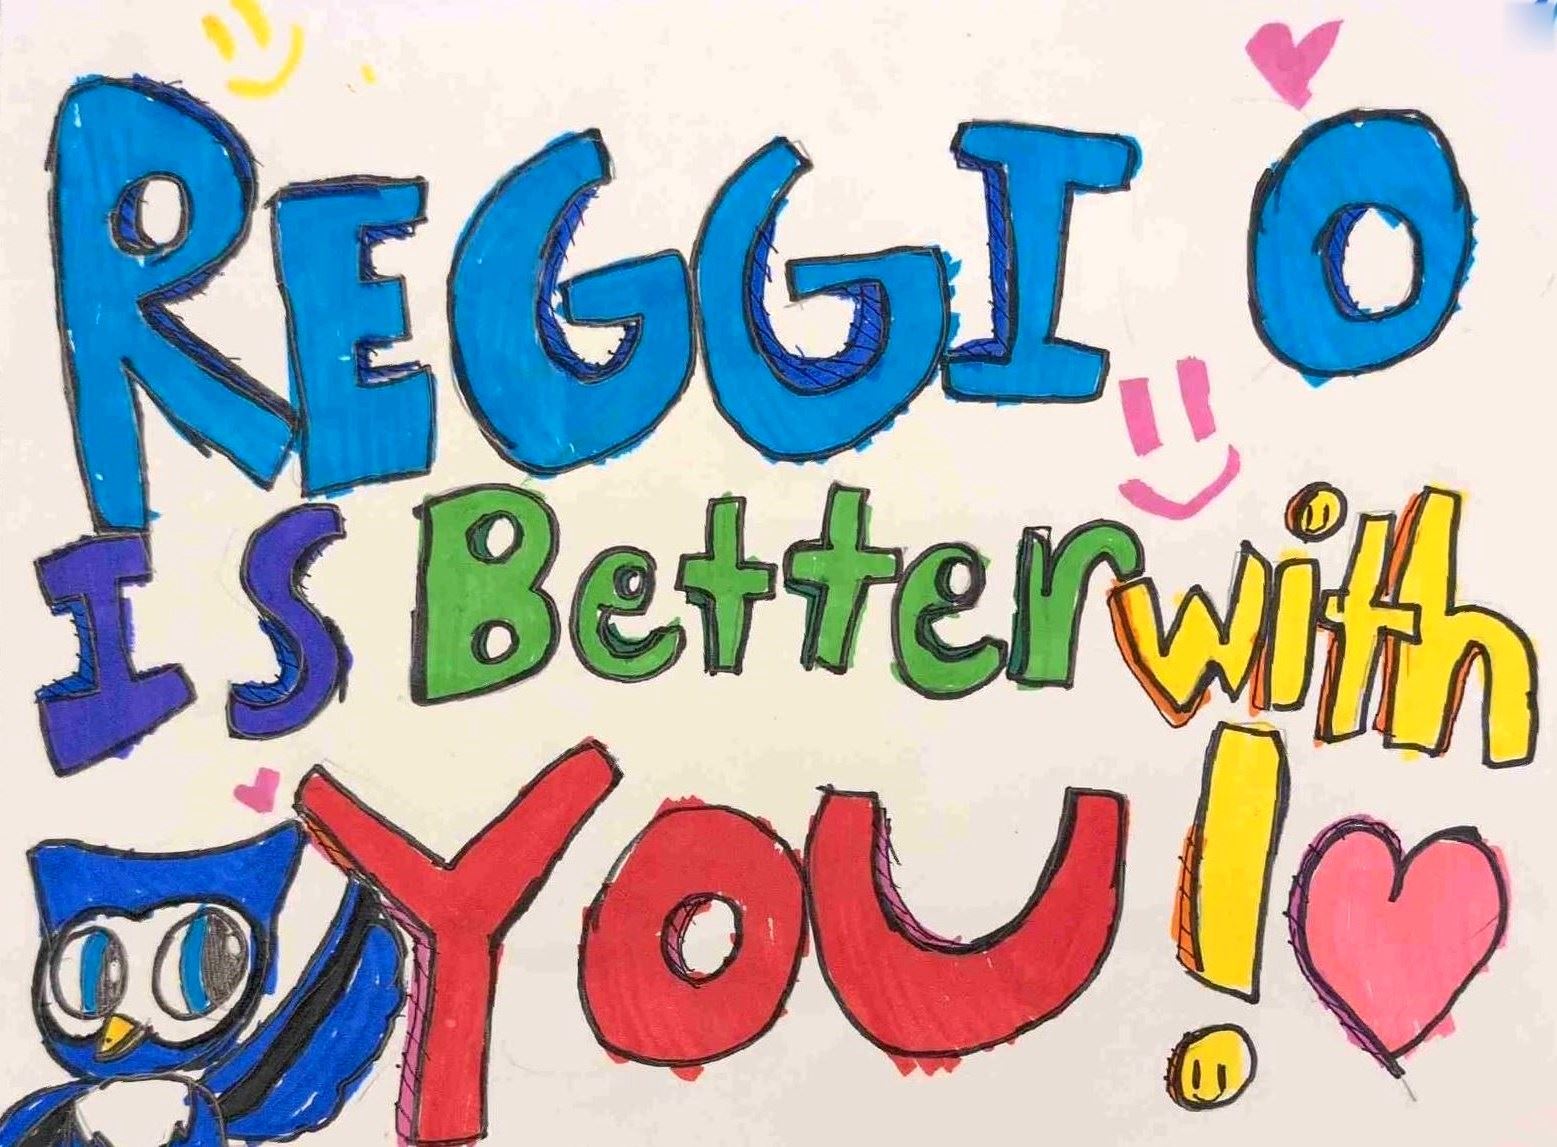 REGGIO
IS Better with
YOU!